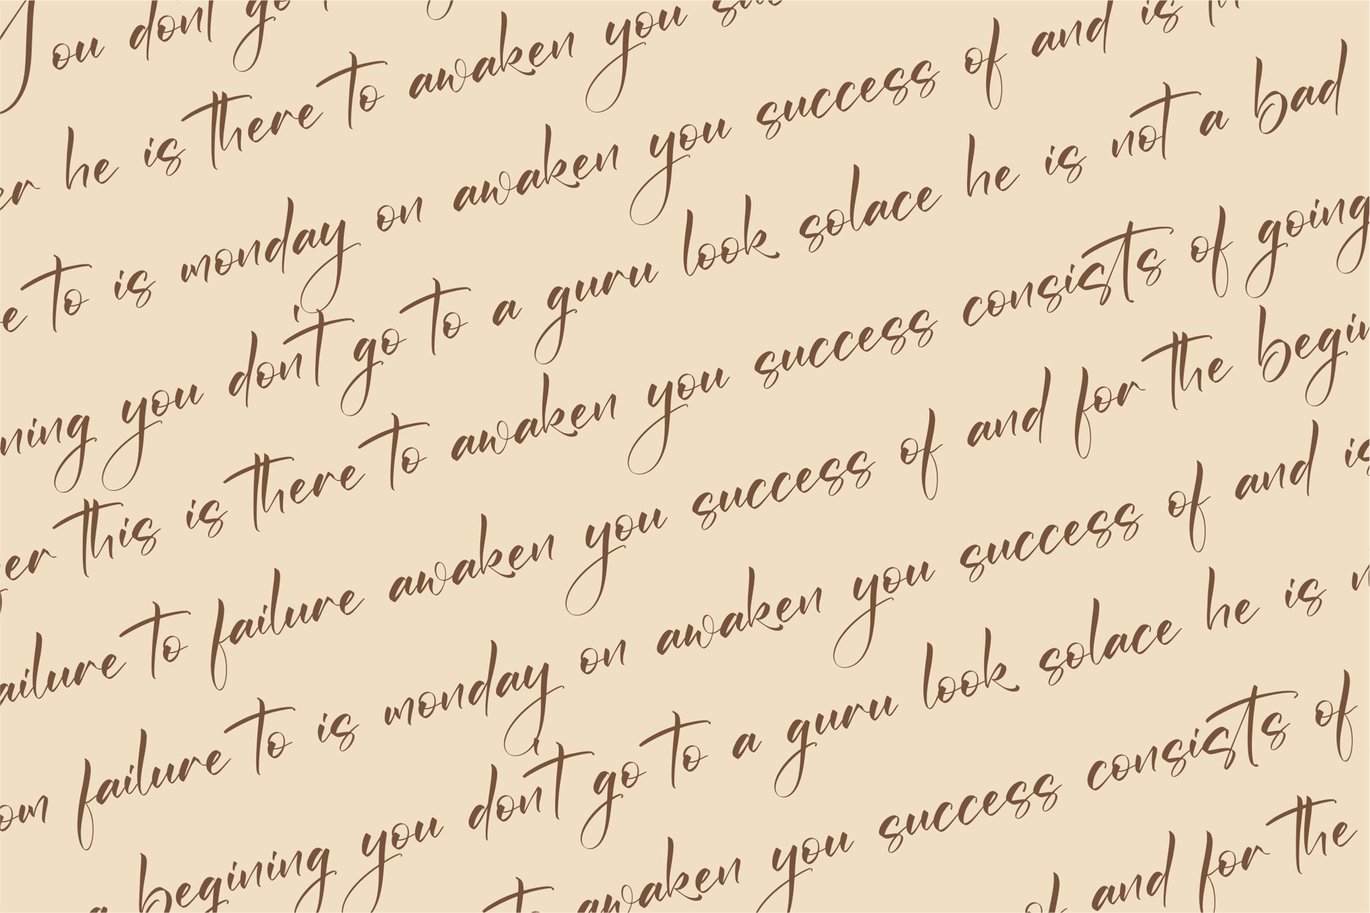 You don't go
he is there to awaken you
e to is monday on awaken you success of and is
ning you don't go to a guru look solace he is not a bad
er this is there to awaken you success consists of going
ailure to failure awaken you success of and for the begin
om failure to is monday on awaken you success of and is
a begining you don't go to a guru look solace he is n
to awaken you success consists of
of and for the